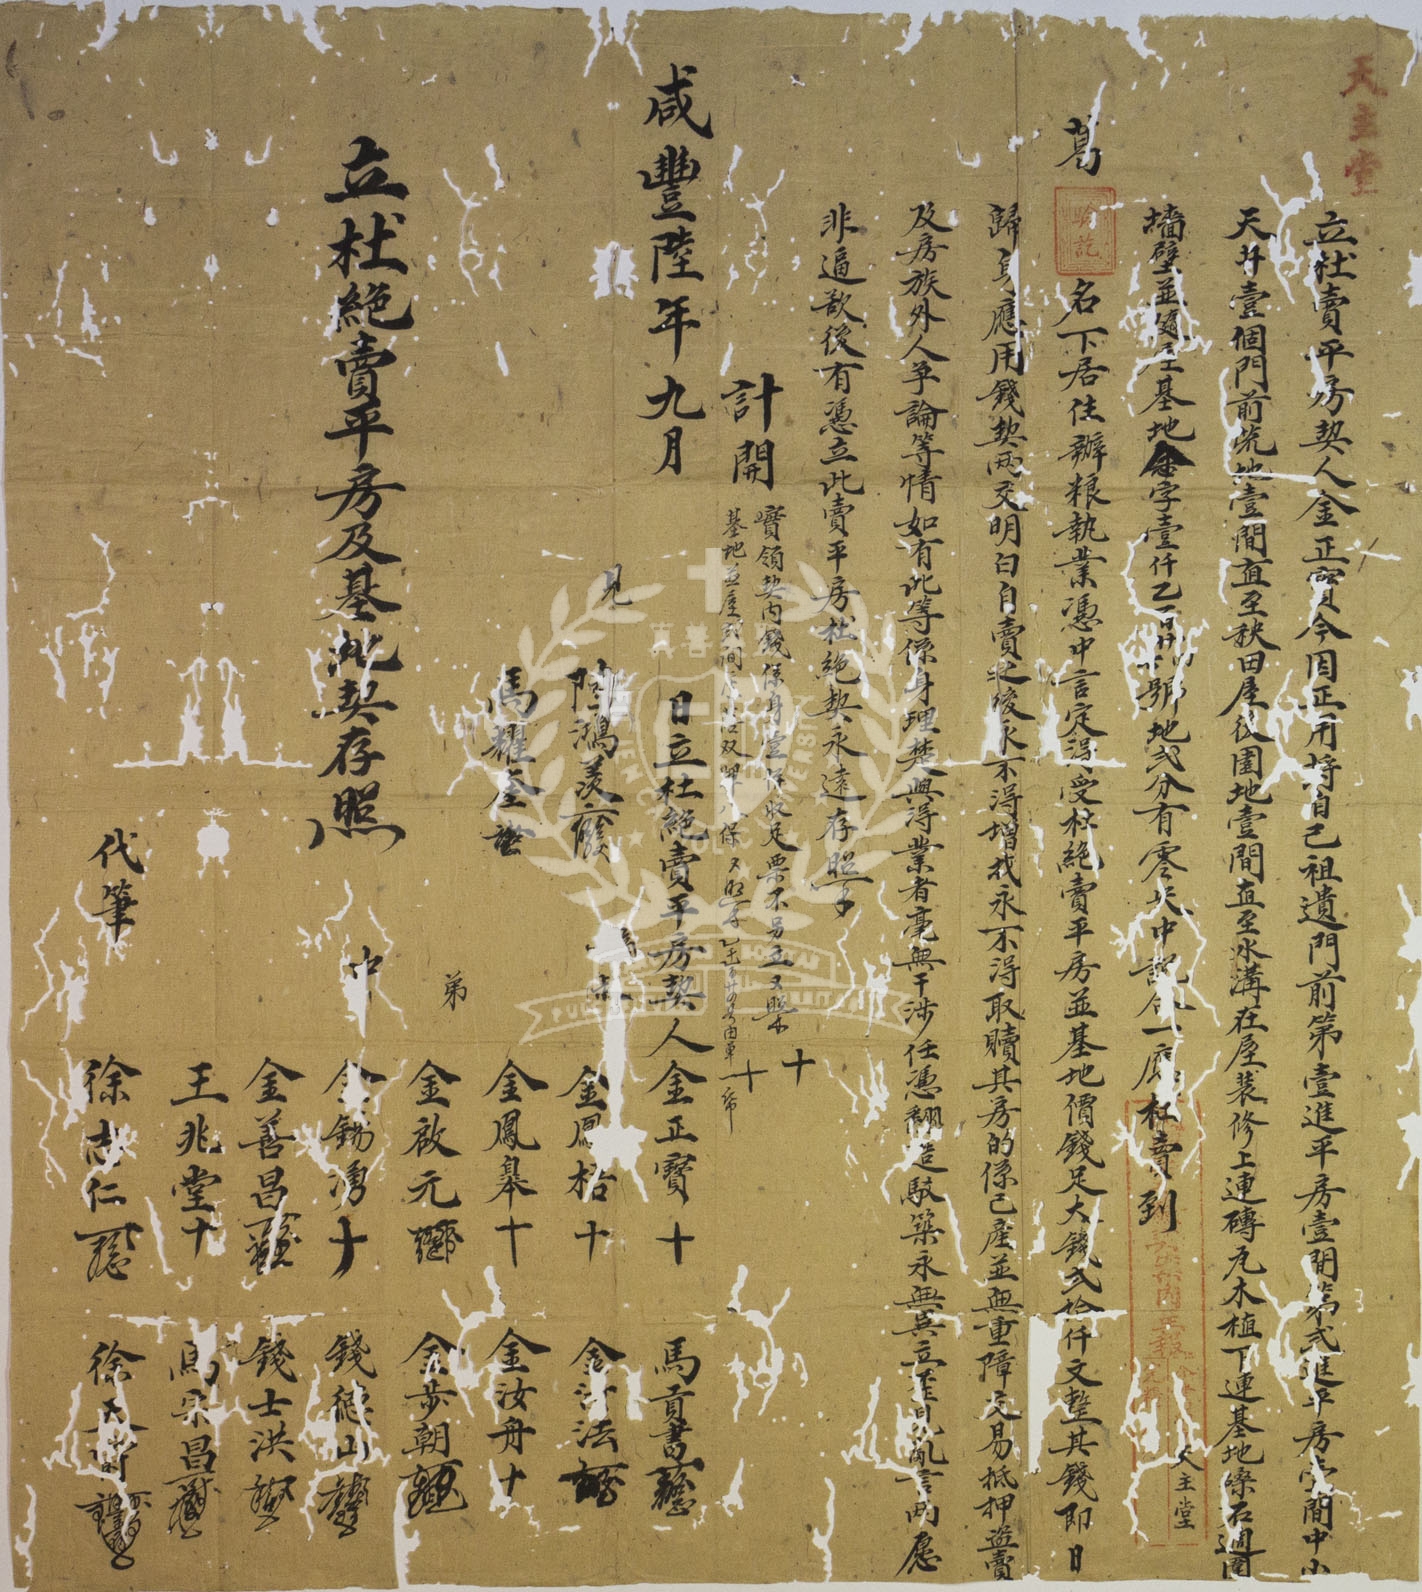 天主堂
立杜賣平房契人金正寶今因正用將自己祖遺門前第壹進平房壹間第弍進平房壹間中小
天井壹個門前荒地壹間直至秧田屋後園地壹間直至水溝在屋裝修上連磚瓦木植下連基地磉石週圍
墻壁並隨屋基地金字壹仟乙百號地弍分有零央中說合一應杜賣到
天主堂
葛
驗訖
名下居住辦粮執業憑中言定得受杜絕賣平房並基地價錢足大錢弍拾仟文整其錢即日
歸身應用錢契兩交明白自賣之後永不得增找永不得取贖其房的係己產並無重障交易抵押盜賣
及房族外人爭論等情如有此等係身理楚與得業者毫無干涉任憑翻造駁築永無異立至見亂言兩愿
非逼欲後有憑立此賣平房杜絕契永遠存照
計開
實領契內錢係身當保收足票不另立又照十
基地並屋
咸豐陸年九月 日立杜絕賣平房契人金正寶十 馬貢書
見 陸鴻美 金鳳梧十 金法
馬耀奎 金鳳皋十 金汝舟十
弟 金啟元 金步朝
立杜絕賣平房及基地契存照
中 金錫湧十 錢德山
金善昌 錢士洪
王兆堂十 馬宋昌
代筆 徐志仁 徐天